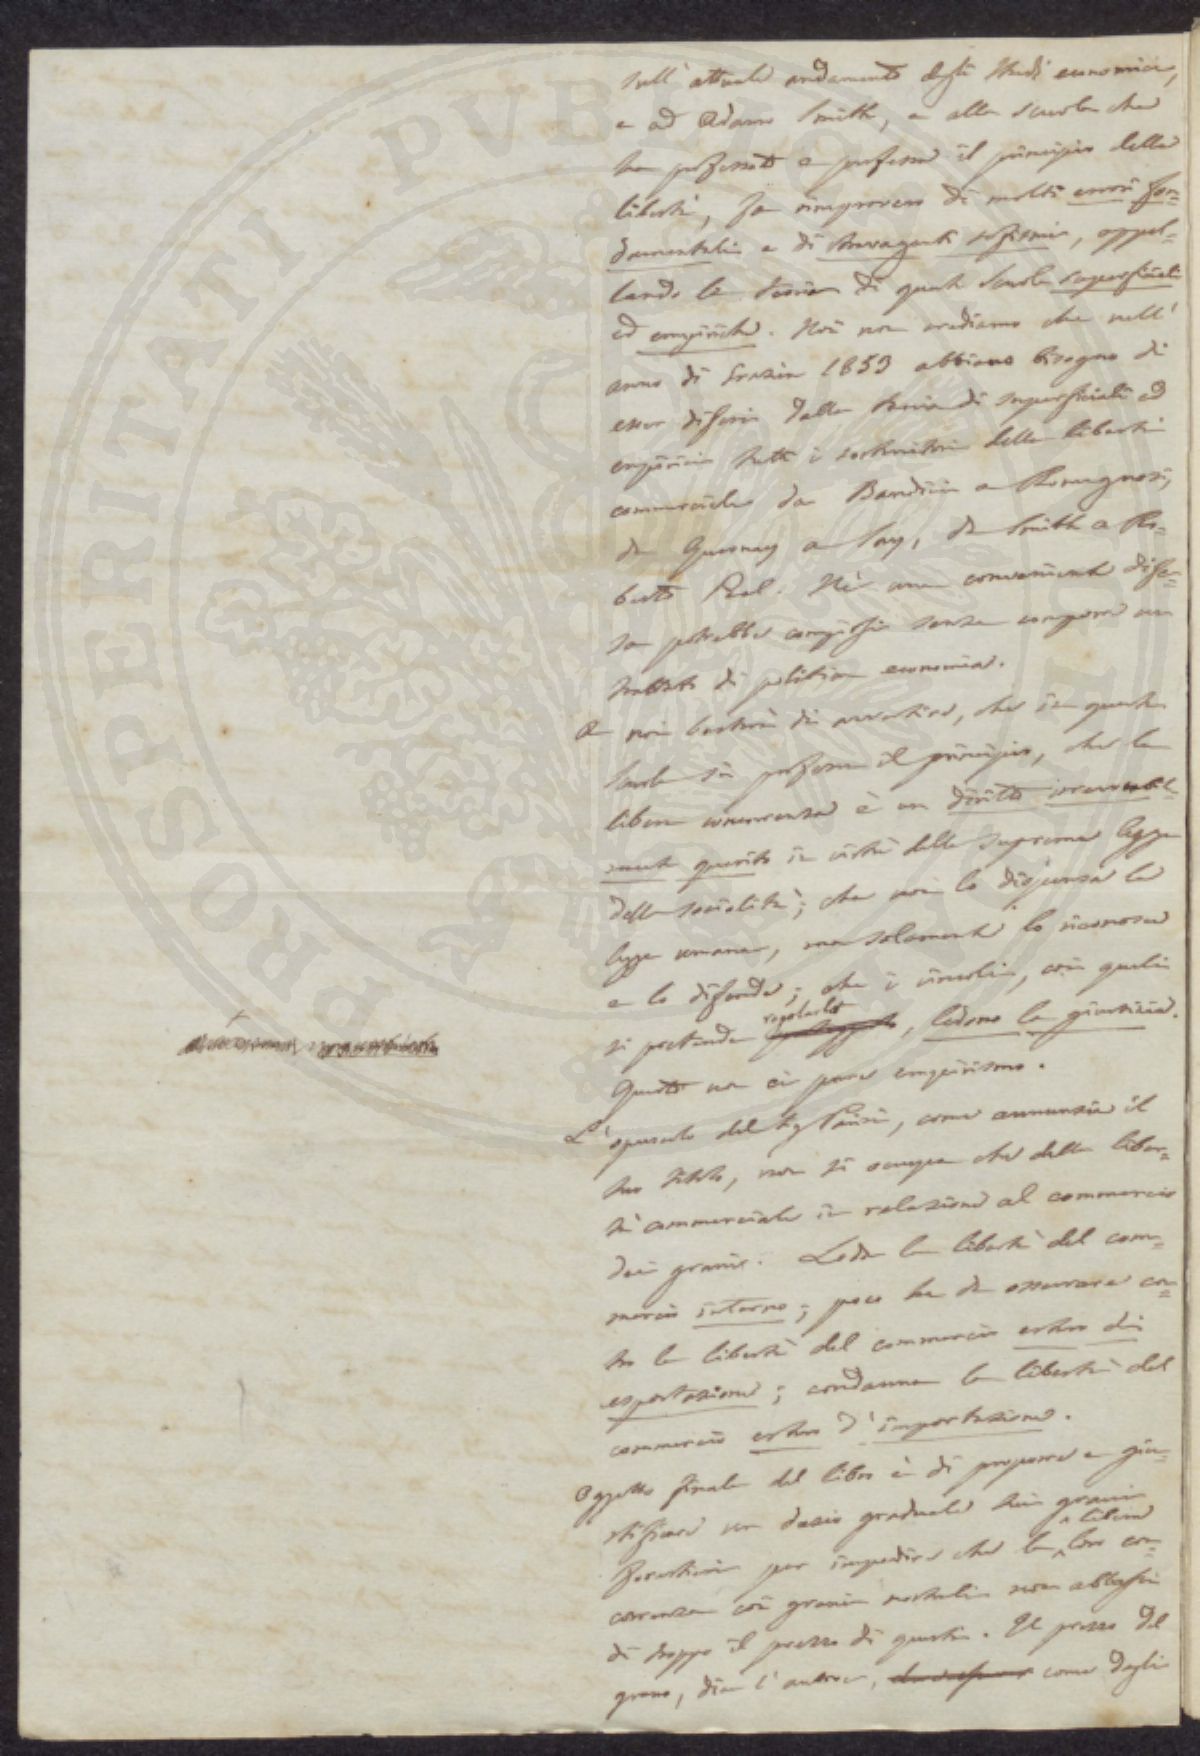 sull'attuale andamento degli studi economici,
e ad Adamo Smith, e alla scuola che
ha professato e professa il principio della
libertà, fa rimprovero di molti errori fon=
damentali e di stravaganti sofismi, appel=
lando le teorie di quella scuola superficiali
ed empiriche. Noi non crediamo che nell'
anno di grazia 1853 abbiano bisogno di
esser difesi dalla taccia di superficiali ed
empirici tutti i sostenitori della libertà
commerciale da Bandini a Romagnosi,
da Quesnay a Say, da Smith a Ro=
berto Peel. Nè una conveniente dife=
sa potrebbe compiersi senza comporre un
trattato di politica economia.
A noi basterà di avvertire, che in quella
scuola si professa il principio, che la
libera concorrenza è un diritto irrevocabil=
mente quesito in virtù della suprema legge
della socialità; che non lo dispensa la
legge umana, ma solamente lo riconosce
e lo difende; che i vincoli, coi quali
si pretende regolarlo, ledono la giustizia.
Questo non ci pare empirismo.
L'opuscolo del Sig Parisi, come annunzia il
suo titolo, non si occupa che della liber=
tà commerciale in relazione al commercio
dei grani. Loda la libertà del com=
mercio interno; poco ha da osservare con=
tro la libertà del commercio estero di
esportazione; condanna la libertà del
commercio estero d'importazione.
Oggetto finale del libro è di proporre e giu=
stificare un dazio graduale sui grani
forestieri per impedire che la libera loro con=
correnza coi grani nostrali non abbassi
di troppo il prezzo di questi. Il prezzo del
grano, dice l'autore, come dagli